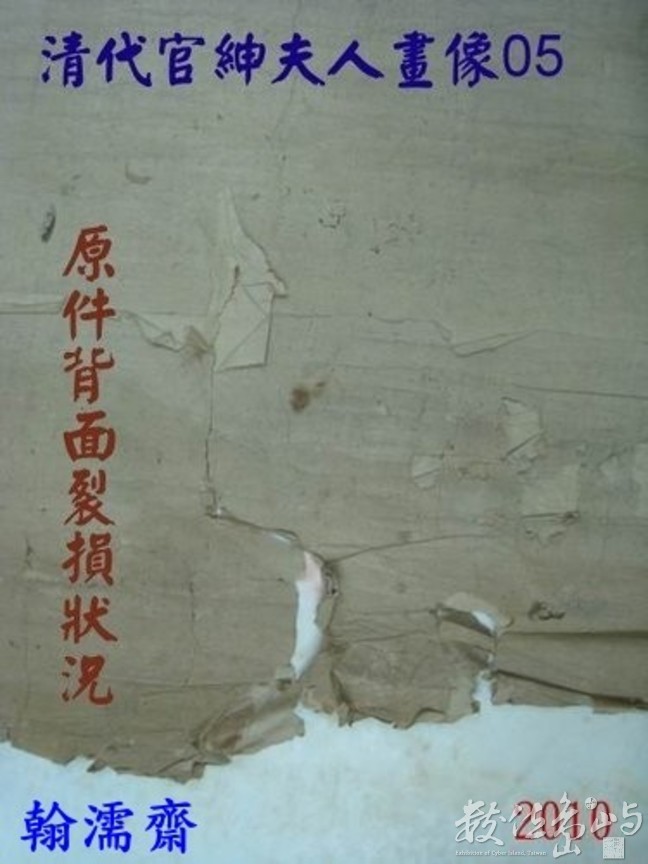 清代官紳夫人畫像05
原件背面裂損狀況
翰濡齋
2010
數位島嶼